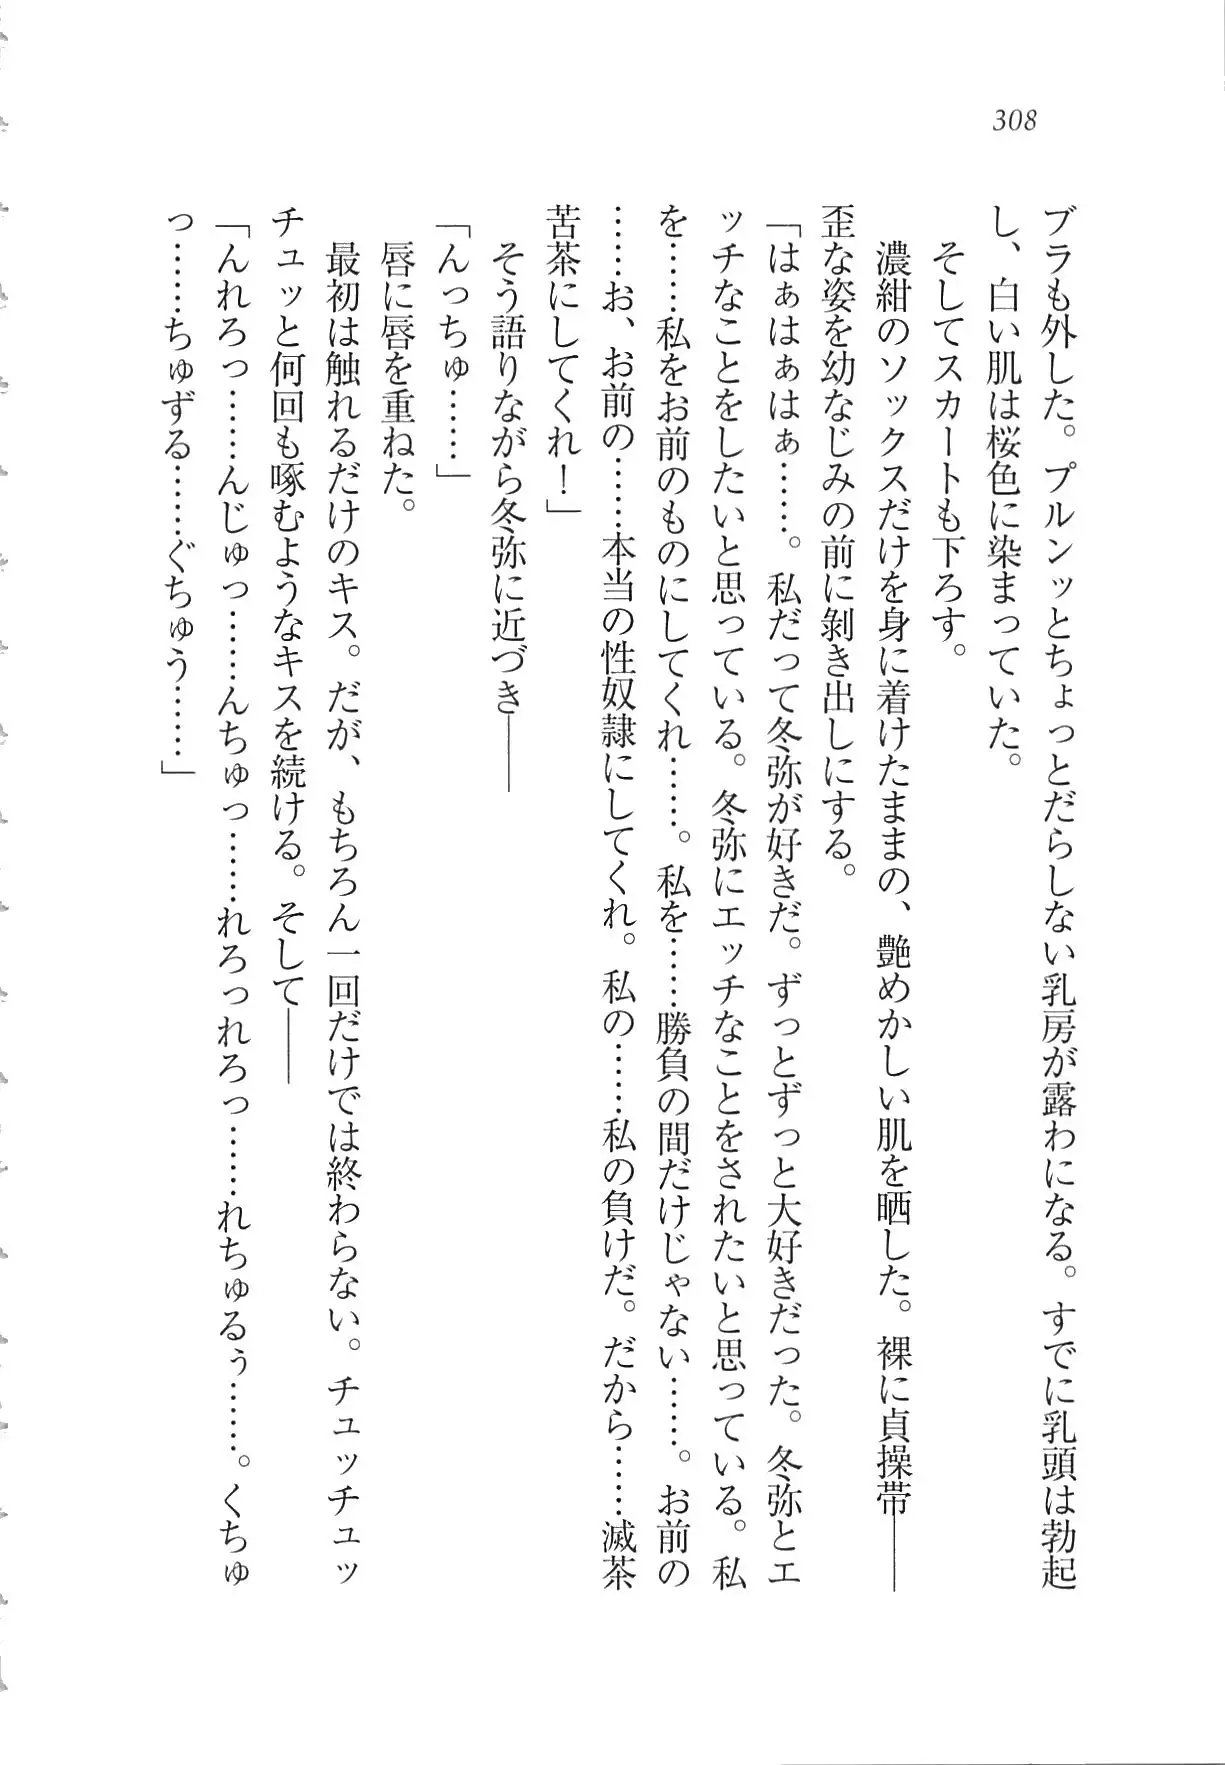 308
ブラも外した。プルンッとちょっとだらしない乳房が露わになる。すでに乳頭は勃起
し、白い肌は桜色に染まっていた。
そしてスカートも下ろす。
濃紺のソックスだけを身に着けたままの、艶めかしい肌を晒した。裸に貞操帯――
歪な姿を幼なじみの前に剝き出しにする。
「はぁはぁはぁ……。私だって冬弥が好きだ。ずっとずっと大好きだった。冬弥とエ
ッチなことをしたいと思っている。冬弥にエッチなことをされたいと思っている。私
を……私をお前のものにしてくれ……。私を……勝負の間だけじゃない……。お前の
……お、お前の……本当の性奴隷にしてくれ。私の……私の負けだ。だから……滅茶
苦茶にしてくれ！」
そう語りながら冬弥に近づき――
「んっちゅ……」
唇に唇を重ねた。
最初は触れるだけのキス。だが、もちろん一回だけでは終わらない。チュッチュッ
チュッと何回も啄むようなキスを続ける。そして――
「んれろっ……んじゅっ……んちゅっ……れろっれろっ……れちゅるぅ……。くちゅ
っ……ちゅずる……ぐちゅう……」